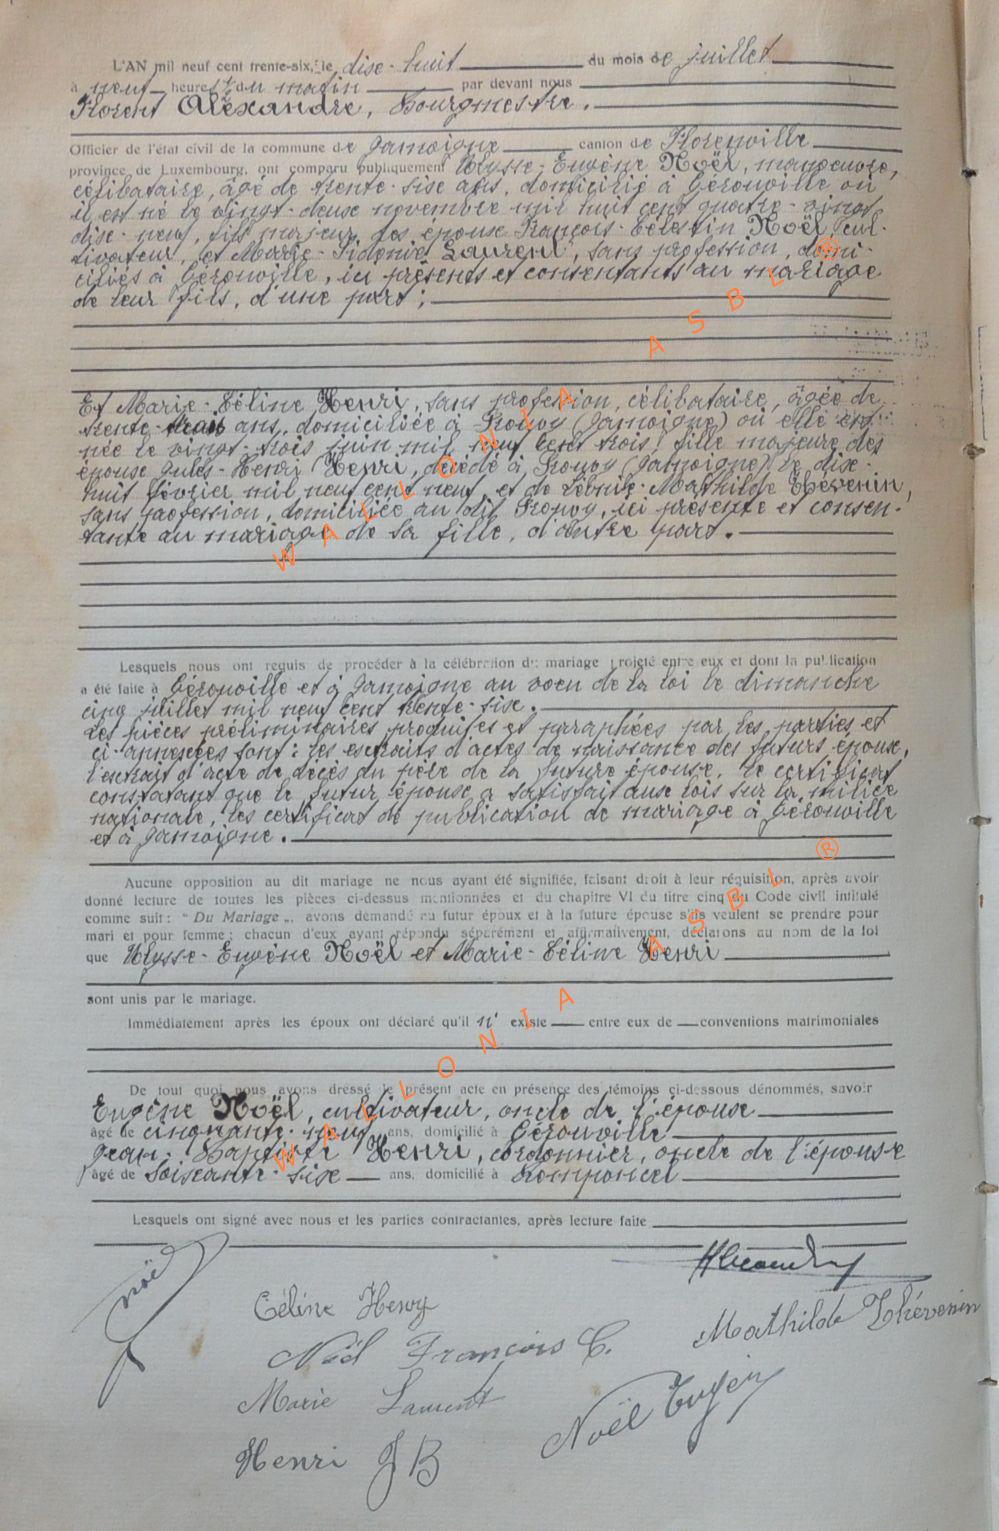 L'AN mil neuf cent trente-six, le dix-huit du mois de juillet
à neuf heures du matin par devant nous
Florent Alexandre, Bourgmestre,
Officier de l'état civil de la commune de Jamoigne canton de Florenville
province de Luxembourg, ont comparu publiquement Ulysse-Eugène Noël, manoeuvre,
célibataire, âgé de trente-six ans, domicilié à Gérouville où
il est né le vingt-deux novembre mil huit cent quatre-vingt
dix-neuf, fils majeur des époux François-Célestin Noël, cul-
tivateur, et Marie-Sidonie Laurent, sans profession, domi-
ciliés à Gérouville, ici présents et consentants au mariage
de leur fils, d'une part;
Et Marie-Céline Henri, sans profession, célibataire, âgée de
trente-trois ans, domiciliée à Prouvy (Jamoigne) où elle est
née le vingt-trois juin mil neuf cent trois, fille majeure des
époux Jules-Henri Henri, décédé à Prouvy (Jamoigne) le dix-
huit février mil neuf cent neuf, et de Léonie-Mathilde Thévenin,
sans profession, domiciliée au dit Prouvy, ici présente et consen-
tante au mariage de sa fille, d'autre part.
Lesquels nous ont requis de procéder à la célébration du mariage projeté entre eux et dont la publication
a été faite à Gérouville et à Jamoigne au voeu de la loi le dimanche
cinq juillet mil neuf cent trente-six.
Les pièces préliminaires produites et paraphées par les parties et
ci-annexées sont: les extraits d'actes de naissance des futurs époux,
l'extrait d'acte de décès du père de la future épouse, le certificat
constatant que le futur époux a satisfait aux lois sur la milice
nationale, les certificat de publication de mariage à Gérouville
et à Jamoigne.
Aucune opposition au dit mariage ne nous ayant été signifiée, faisant droit à leur réquisition, après avoir
donné lecture de toutes les pièces ci-dessus mentionnées et du chapitre VI du titre cinq du Code civil intitulé
comme suit : " Du Mariage „, avons demandé au futur époux et à la future épouse s'ils veulent se prendre pour
mari et pour femme ; chacun d'eux ayant répondu séparément et affirmativement, déclarons au nom de la loi
que Ulysse-Eugène Noël et Marie-Céline Henri
sont unis par le mariage.
Immédiatement après les époux ont déclaré qu'il n'existe entre eux de conventions matrimoniales
De tout quoi nous avons dressé le présent acte en présence des témoins ci-dessous dénommés, savoir
Eugène Noël, cultivateur, oncle de l'époux
âgé de cinquante-neuf ans, domicilié à Gérouville
Jean-Baptiste Henri, cordonnier, oncle de l'épouse
âgé de soixante-six ans, domicilié à Romponcel
Lesquels ont signé avec nous et les parties contractantes, après lecture faite
noël
Céline Henry
Mathilde Thévenin
Noël François C.
Marie Laurent
Noël Eugèn
Henri J B
WALLONIA ASBL ®
WALLONIA ASBL ®